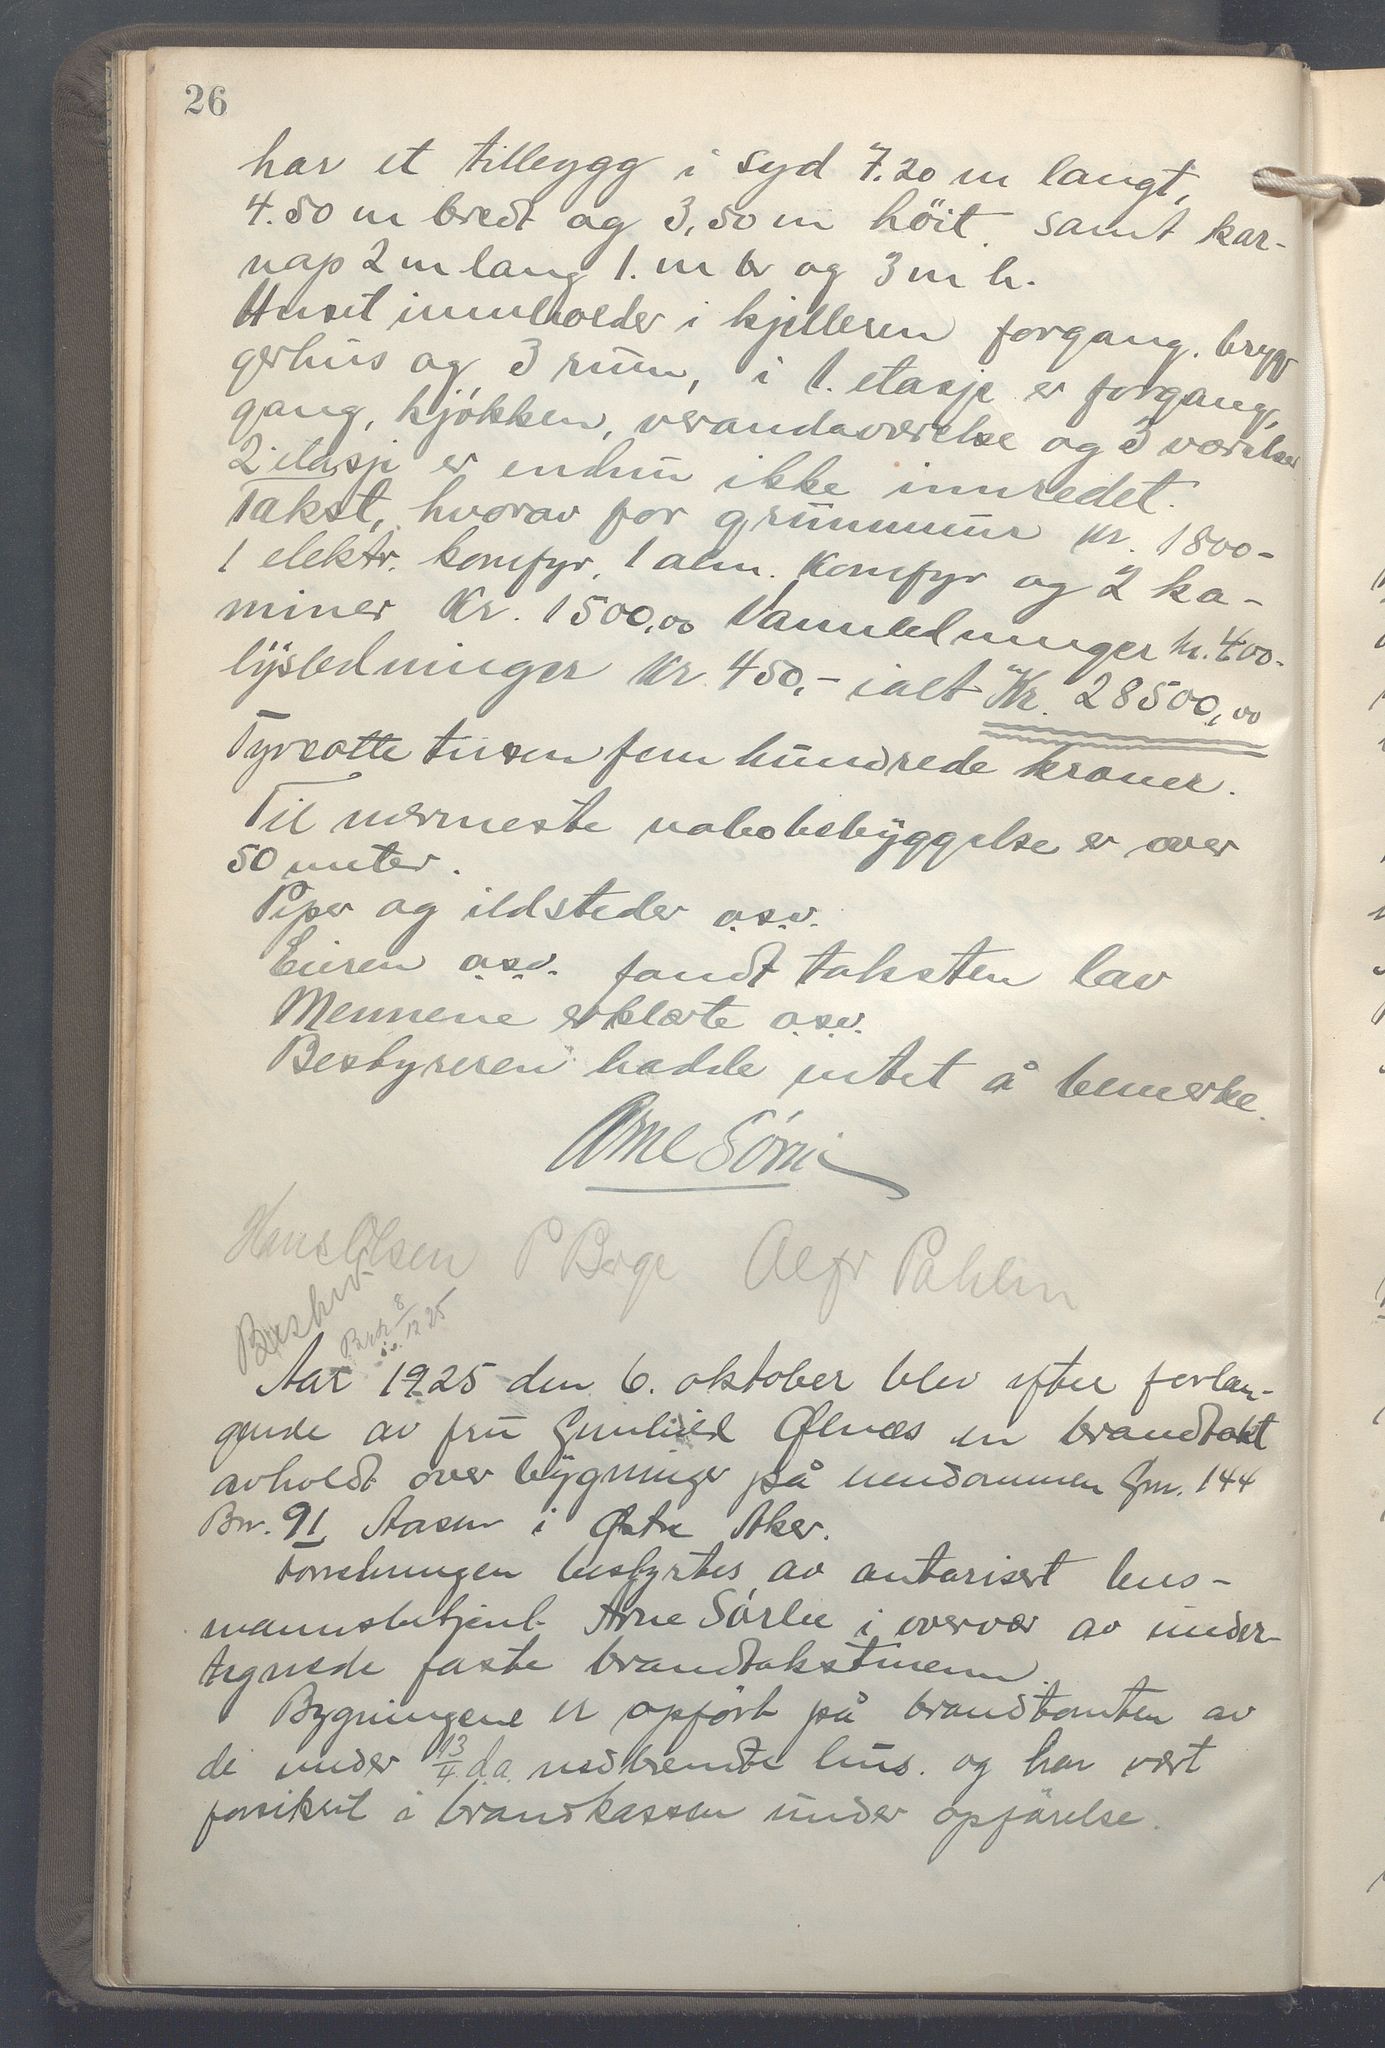 26
har et tillbygg i syd 7.20 m langt,
4.50 m bredt og 3,50 m höit. samt kar-
nap 2 m lang 1. m br og 3 m h.
Huset inneholder i kjelleren forgang. brygg
gerhus og 3 rum, i 1. etasje er forgang,
gang, kjökken, verandaværelse og 3 værelser
2. etasje er endnu ikke innredet.
Takst, hvorav for grunnmur Kr. 1800-
1 elektr. komfyr, 1 alm. Komfyr og 2 ka-
miner Kr. 1500,00 Vannledninger kr. 400-
lysledninger Kr. 450,- ialt Kr. 28500,00
Tyveotte tusen fem hundrede kroner.
Til nærmeste nabobebyggelse er over
50 meter.
Piper og ildsteder o.s.v.
Eieren o.s.v. fandt taksten lav
Mennene erklærte o.s.v.
Bestyreren hadde intet å bemerke.
Arne Sörlie
Hans Olsen P Berge Alfr Pahlin
Beskr 8/12 25
Aar 1925 den 6. oktober blev efter forlan-
gende av fru Gunhild Ølnæs en brandtakt
avholdt over bygninger på eiendommen Gnr. 144
Bnr. 91 Aasen i Østre Aker.
Forretningen bestyrtes av autorisert lens-
mannsbetjent Arne Sörlie i overvær av under-
tegnede faste brandtakstmenn.
Bygningene er opfört på brandtomten av
de under 13/4 d.a. nedbrendte hus. og har vært
forsikert i brandkassen under opförelse.